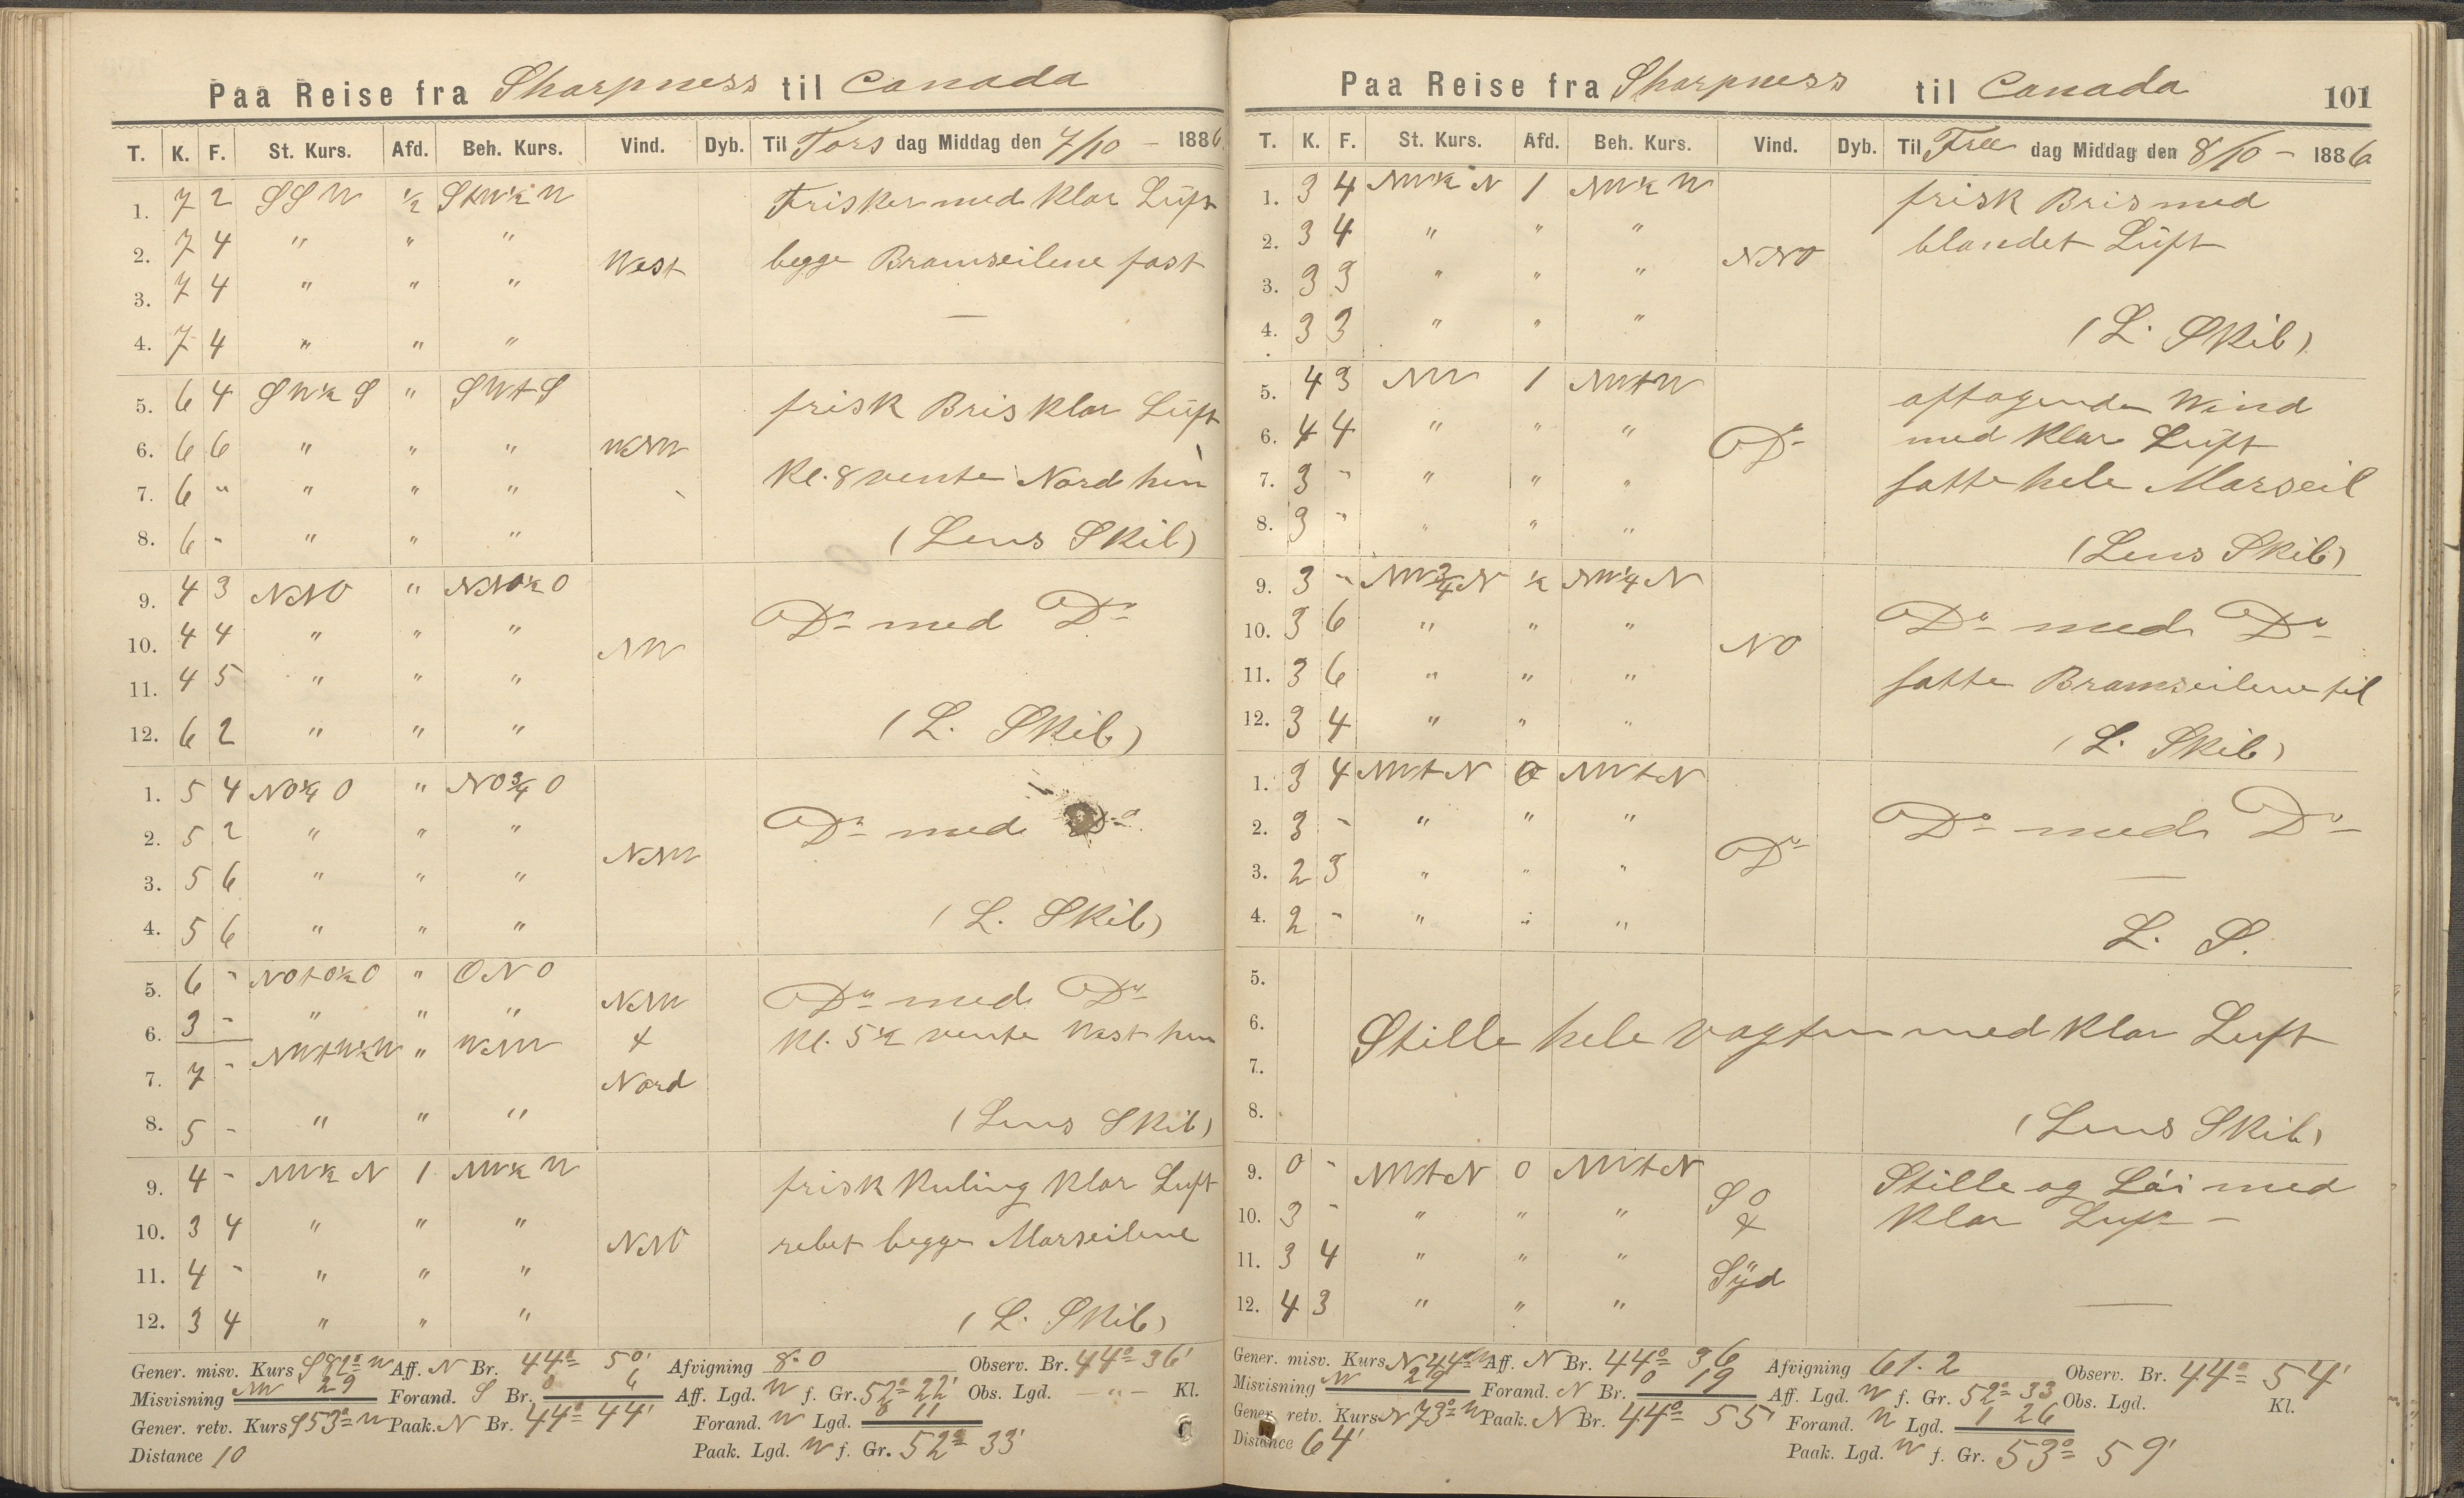 Paa Reise fra Sharpness til Canada
T. K. F. St. Kurs. Afd. Beh. Kurs. Vind. Dyb. Til Tors dag Middag den 7/10 - 1886
1. 7 2 SSW ½ StW½W Frisker med klar Luft
2. 7 4 " " " West begge Bramseilene fast
3. 7 4 " " "
4. 7 4 " " "
5. 6 4 SW½S " SWtS frisk Bris klar Luft
6. 6 6 " " " WNW
7. 6 " " " " Kl. 8 vente Nord hen
8. 6 - " " " (Lens Skib)
9. 4 3 NNO " NNO½O Do med Do
10. 4 4 " " " NW
11. 4 5 " " "
12. 6 2 " " " (L. Skib)
1. 5 4 NO¼O " NO¾O Do med Do
2. 5 2 " " " NNW
3. 5 6 " " "
4. 5 6 " " " (L. Skib)
5. 6 - NOtO½O " ONO NNW Do med Do
6. 3 - " " " & Kl. 5½ vente West hen
7. 7 - NWtW½W " WNW Nord
8. 5 - " " " (Lens Skib)
9. 4 - NW½N 1 NW½W frisk Kuling klar Luft
10. 3 4 " " " NNO rebet begge Marseilene
11. 4 - " " "
12. 3 4 " " " (L. Skib)
Gener. misv. Kurs S 82° W Aff. N Br. 44° 50' Afvigning 8.0 Observ. Br. 44° 36'
Misvisning W 29 Forand. S Br. 0 6 Aff. Lgd. W f. Gr. 52° 22' Obs. Lgd. - " - Kl.
Gener. retv. Kurs S 53° W Paak. N Br. 44° 44' Forand. W Lgd. 0 11
Distance 10 Paak. Lgd. W f. Gr. 52° 33'
Paa Reise fra Sharpness til Canada 101
T. K. F. St. Kurs. Afd. Beh. Kurs. Vind. Dyb. Til Fre dag Middag den 8/10 - 1886
1. 3 4 NW½N 1 NW½W frisk Bris med
2. 3 4 " " " NNO blandet Luft
3. 3 3 " " "
4. 3 3 " " " (L. Skib)
5. 4 3 NW 1 NWtW aftagende Wind
6. 4 4 " " " Do med klar Luft
7. 3 - " " " satte hele Marseil
8. 3 - " " " (Lens Skib)
9. 3 - NW¾N ½ NW¼N Do med Do
10. 3 6 " " " NO
11. 3 6 " " " satte Bramseilene til
12. 3 4 " " " (L. Skib)
1. 3 4 NWtN 0 NWtN
2. 3 - " " " Do Do med Do
3. 2 3 " " "
4. 2 - " " " L. S.
5.
6. Stille hele vagten med klar Luft
7.
8. (Lens Skib)
9. 0 - NWtN 0 NWtN SO Stille og Lai med
10. 3 - " " " & klar Luft -
11. 3 4 " " " Syd
12. 4 3 " " "
Gener. misv. Kurs N 44° W Aff. N Br. 44° 36 Afvigning 61.2 Observ. Br. 44° 54'
Misvisning W 29 Forand. N Br. 0 19 Aff. Lgd. W f. Gr. 52° 33 Obs. Lgd. Kl.
Gener. retv. Kurs N 73° W Paak. N Br. 44° 55' Forand. W Lgd. 1 26
Distance 64' Paak. Lgd. W f. Gr. 53° 59'